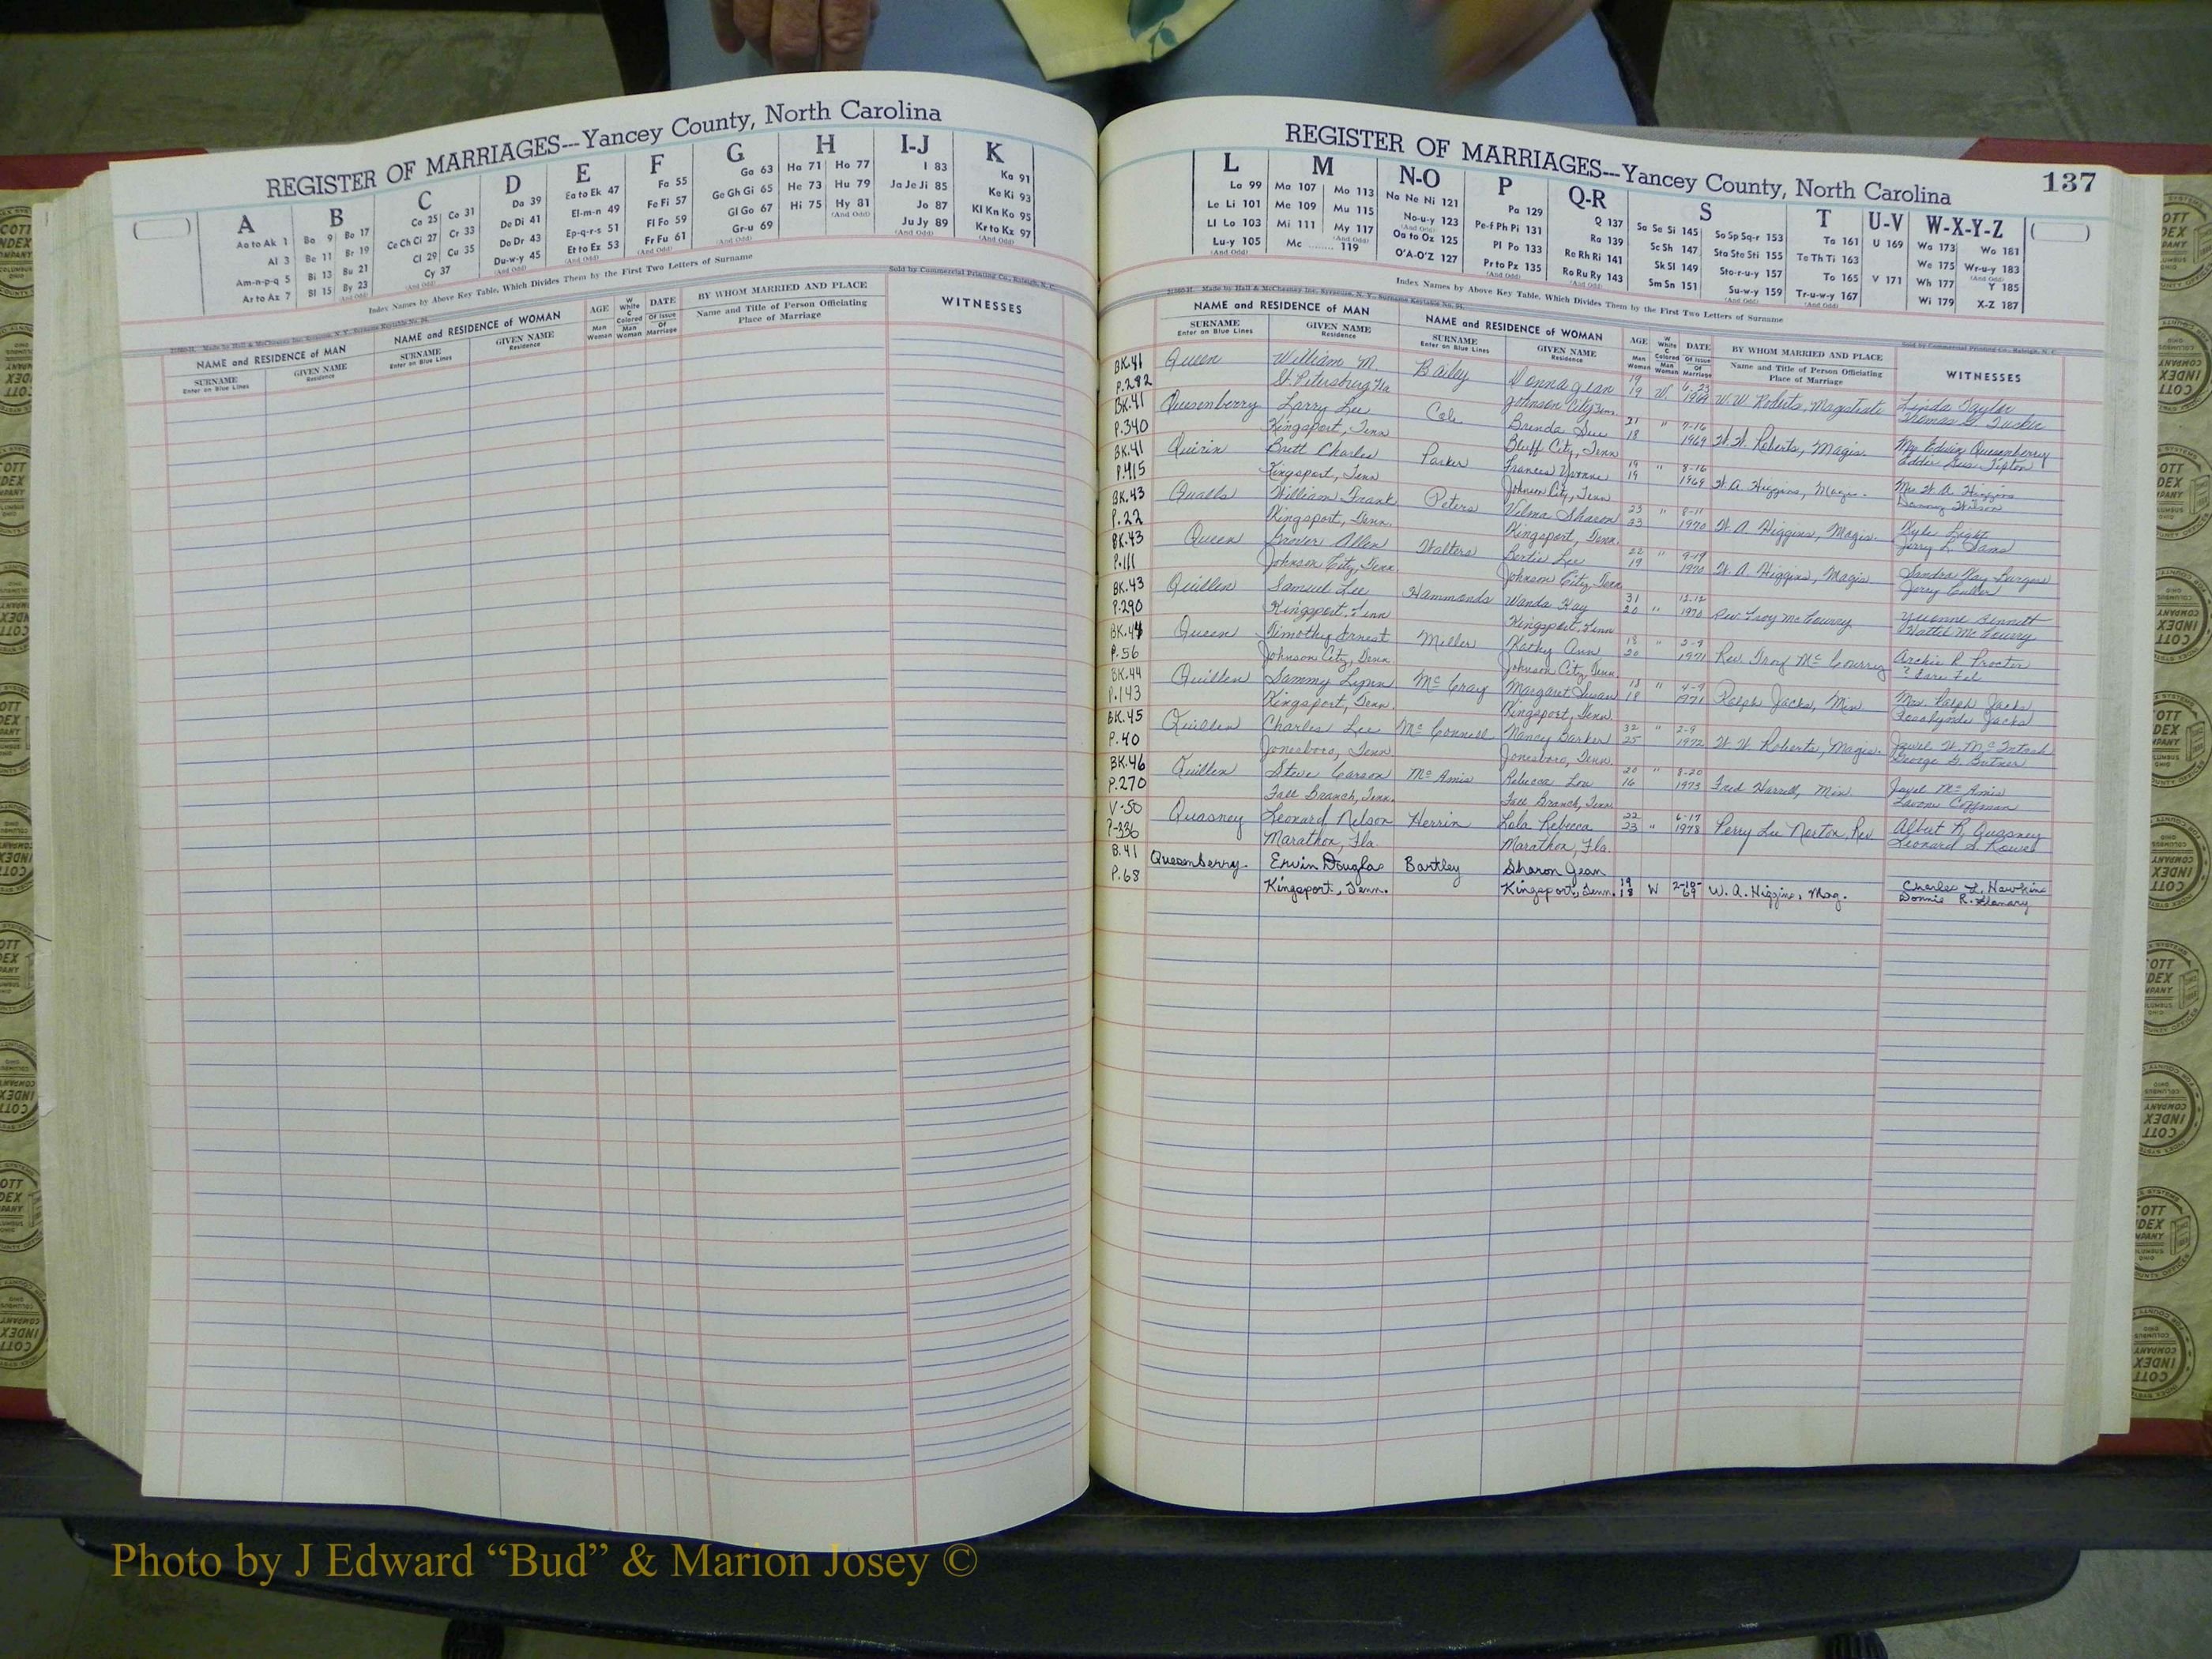 REGISTER OF MARRIAGES---Yancey County, North Carolina
A B C D E F G H I-J K
Aa to Ak 1
Al 3
Am-n-p-q 5
Ar to Az 7
Ba 9 Bo 17
Be 11 Br 19
Bi 13 Bu 21
Bl 15 By 23
(And Odd)
Ca 25 Co 31
Ce Ch Ci 27 Cr 33
Cl 29 Cu 35
Cy 37
(And Odd)
Da 39
De Di 41
Do Dr 43
Du-w-y 45
(And Odd)
Ea to Ek 47
El-m-n 49
Ep-q-r-s 51
Et to Ez 53
Fa 55
Fe Fi 57
Fl Fo 59
Fr Fu 61
(And Odd)
Ga 63
Ge Gh Gi 65
Gl Go 67
Gr-u 69
(And Odd)
Ha 71 Ho 77
He 73 Hu 79
Hi 75 Hy 81
(And Odd)
I 83
Ja Je Ji 85
Jo 87
Ju Jy 89
(And Odd)
Ka 91
Ke Ki 93
Kl Kn Ko 95
Kr to Kz 97
Index Names by Above Key Table, Which Divides Them by the First Two Letters of Surname
Sold by Commercial Printing Co., Raleigh, N. C.
NAME and RESIDENCE of MAN
SURNAME
Enter on Blue Lines
GIVEN NAME
Residence
NAME and RESIDENCE OF WOMAN
SURNAME
Enter on Blue Lines
GIVEN NAME
Residence
AGE
Man
Woman
W White
C Colored
Man
Woman
DATE
Of Issue
Of Marriage
BY WHOM MARRIED AND PLACE
Name and Title of Person Officiating
Place of Marriage
WITNESSES
REGISTER OF MARRIAGES---Yancey County, North Carolina
137
L M N-O P Q-R S T U-V W-X-Y-Z
La 99
Le Li 101
Ll Lo 103
Lu-y 105
(And Odd)
Ma 107 Mo 113
Me 109 Mu 115
Mi 111 My 117
(And Odd)
Mc ........ 119
Na Ne Ni 121
No-u-y 123
(And Odd)
Oa to Oz 125
O'A-O'Z 127
Pa 129
Pe-f Ph Pi 131
Pl Po 133
Pr to Pz 135
(And Odd)
Q 137
Ra 139
Re Rh Ri 141
Ro Ru Ry 143
(And Odd)
Sa Se Si 145 So Sp Sq-r 153
Sc Sh 147 Sta Ste Sti 155
Sk Sl 149 Sto-r-u-y 157
Sm Sn 151 Su-w-y 159
(And Odd)
Ta 161
Te Th Ti 163
To 165
Tr-u-w-y 167
(And Odd)
U 169
V 171
Wa 173 Wo 181
We 175 Wr-u-y 183
(And Odd)
Wh 177 Y 185
Wi 179 X-Z 187
Index Names by Above Key Table, Which Divides Them by the First Two Letters of Surname
Made by Hall & McChesney Inc. Syracuse, N. Y., Surname Keytable No. 94
Sold by Commercial Printing Co., Raleigh, N. C.
NAME and RESIDENCE of MAN
SURNAME
Enter on Blue Lines
GIVEN NAME
Residence
NAME and RESIDENCE OF WOMAN
SURNAME
Enter on Blue Lines
GIVEN NAME
Residence
AGE
Man
Woman
W White
C Colored
Man
Woman
DATE
Of Issue
Of Marriage
BY WHOM MARRIED AND PLACE
Name and Title of Person Officiating
Place of Marriage
WITNESSES
BK.41 Queen William M. Bailey Donna Jean 19 6-23 Linda Taylor
P.282 St. Petersburg Fla Johnson City, Tenn. 19 W. 1969 W.W. Roberts, Magistrate Thomas G. Tucker
BK.41 Quesenberry Larry Lee Cole Brenda Sue 21 " 7-16 Edwin Quesenberry
P.340 Kingsport, Tenn Bluff City, Tenn 18 1969 W.W. Roberts, Magis. Eddie Gus Tipton
BK.41 Quirin Brett Charles Parker Frances Yvonne 19 " 8-16 Mrs W. A. Higgins
P.415 Kingsport, Tenn Johnson City, Tenn 19 1969 W. A. Higgins, Magis. Danny Wilson
BK.43 Qualls William Frank Peters Velma Sharon 23 " 8-11 Kyle Light
P.22 Kingsport, Tenn. Kingsport, Tenn. 23 1970 W. A. Higgins, Magis. Jerry L. Sams
BK.43 Queen Grover Allen Walters Bertie Lee 22 " 9-19 Sandra Kay Burgess
P.111 Johnson City, Tenn. Johnson City, Tenn 19 1970 W. A. Higgins, Magis Jerry
BK.43 Quillen Samuel Lee Hammonds Wanda Kay 31 12-12 Yvonne Bennett
P.290 Kingsport, Tenn Kingsport, Tenn 20 " 1970 Rev. Troy McCourry Hattie McCourry
BK.44 Queen Timothy Ernest Miller Kathy Ann 18 " 2-9 Archie R Proctor
P.56 Johnson City, Tenn Johnson City, Tenn. 20 1971 Rev Troy McCourry
BK.44 Quillen Sammy Lynn McCray Margaret Susan 18 " 4-9 Mrs. Ralph Jacks
P.143 Kingsport, Tenn. Kingsport, Tenn. 18 1971 Ralph Jacks, Min Rosalynda Jacks
BK.45 Quillen Charles Lee McConnell Nancy Barker 32 " 2-9 Jewel W. McIntosh
P.40 Jonesboro, Tenn Jonesboro, Tenn. 25 1972 W. W. Roberts, Magis. George G. Butner
BK.46 Quillen Steve Carson McAmis Rebecca Lou 20 " 8-20 McAmis
P.270 Fall Branch, Tenn. Fall Branch, Tenn 16 1973 Fred Harrell, Min. Lavone Coffman
V-50 Quasney Leonard Nelson Herrin Lola Rebecca 22 6-17 Albert R. Quasney
P-336 Marathon, Fla. Marathon, Fla. 23 " 1978 Perry Lee Norton, Rev Leonard S. Rowe
B.41 Quesenberry. Ervin Douglas Bartley Sharon Jean
P.68 Kingsport, Tenn. Kingsport, Tenn. 19 18 W 2-18-69 W. A. Higgins, Mag. Charles L. Hawkins
Donnie R. Flanary
Photo by J Edward “Bud” & Marion Josey ©